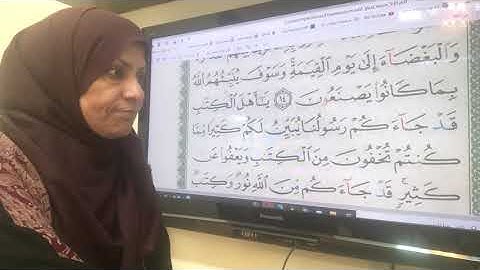 وَٱلْبَغْضَآءَ إِلَىٰ يَوْمِ ٱلْقِيَـٰمَةِ وَسَوْفَ يُنَبِّئُهُمُ ٱللَّهُ
بِمَا كَانُوا۟ يَصْنَعُونَ ١٤ يَـٰٓأَهْلَ ٱلْكِتَـٰبِ
قَدْ جَآءَكُمْ رَسُولُنَا يُبَيِّنُ لَكُمْ كَثِيرًا مِّمَّا
كُنتُمْ تُخْفُونَ مِنَ ٱلْكِتَـٰبِ وَيَعْفُوا۟ عَن
كَثِيرٍ قَدْ جَآءَكُم مِّنَ ٱللَّهِ نُورٌ وَكِتَـٰبٌ